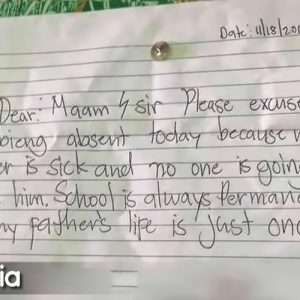 Date: 11/18/20
Dear: Maam / sir Please excuse
bieng absent today because
er is sick and no one is going
him. School is always Permane
my father's life is just one
ia